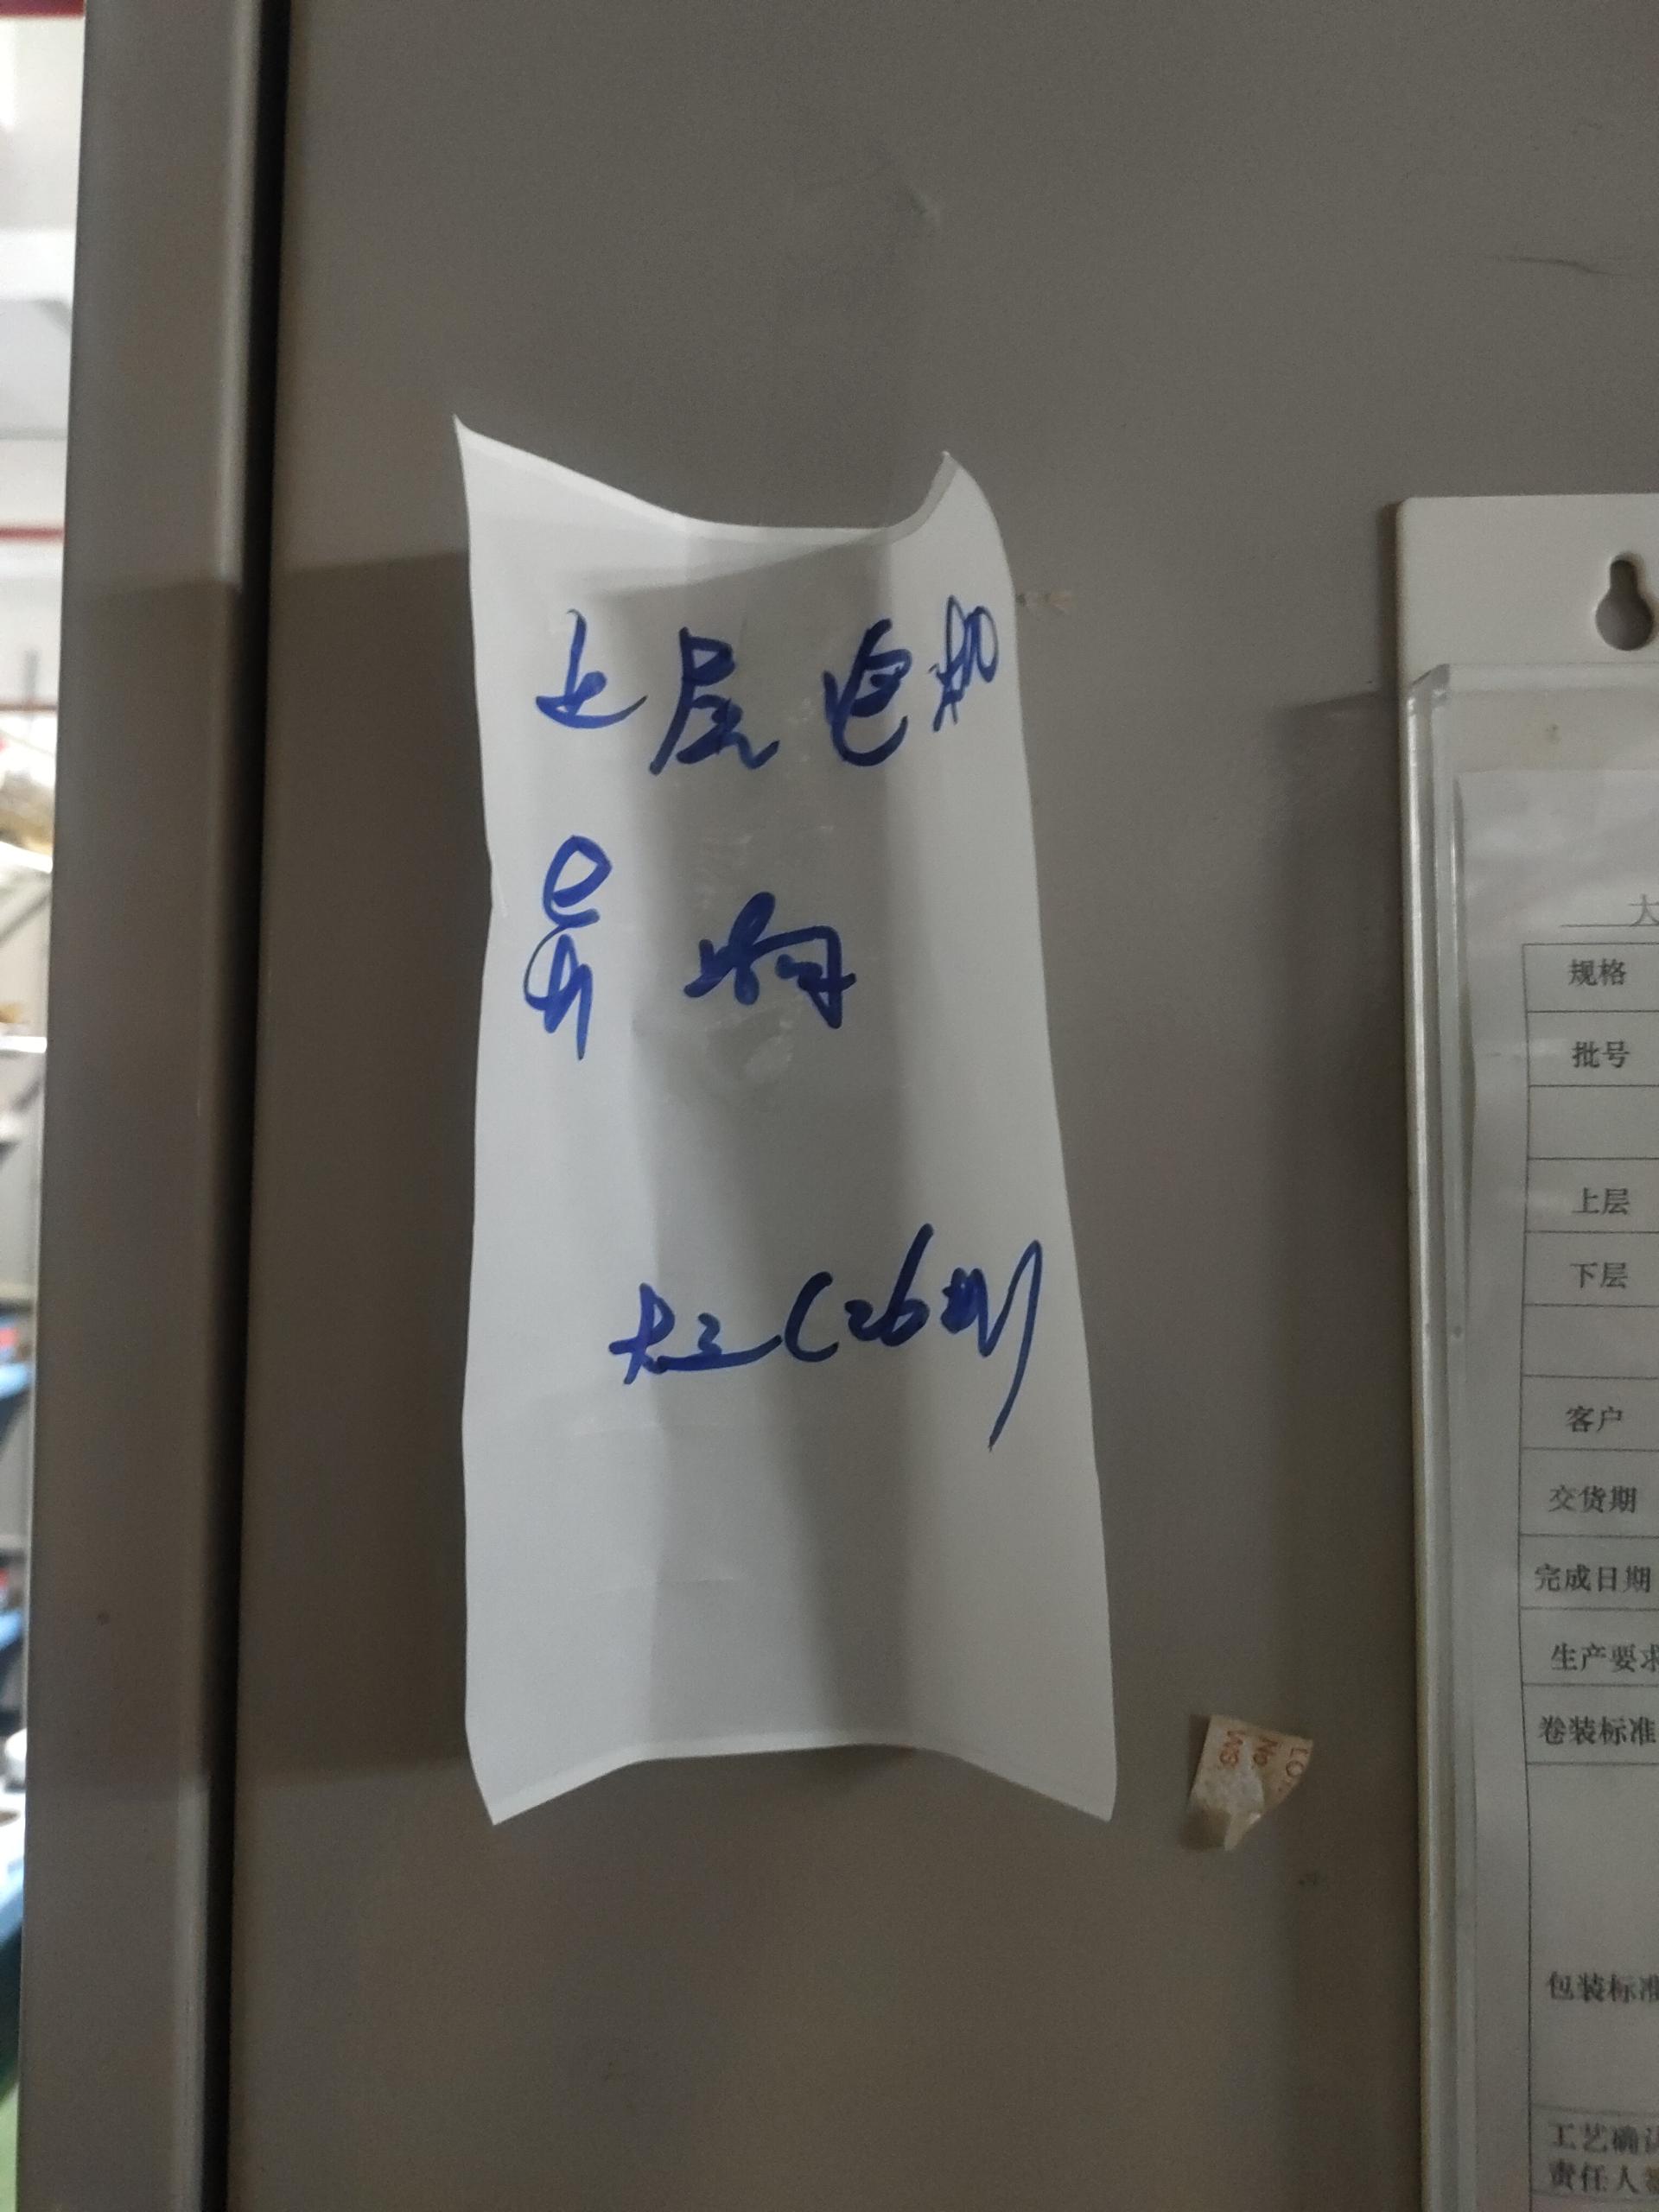 上层电机
异响
大三(26#)
大
规格
批号
上层
下层
客户
交货期
完成日期
生产要求
卷装标准
包装标准
工艺确认
责任人签
LOT
No